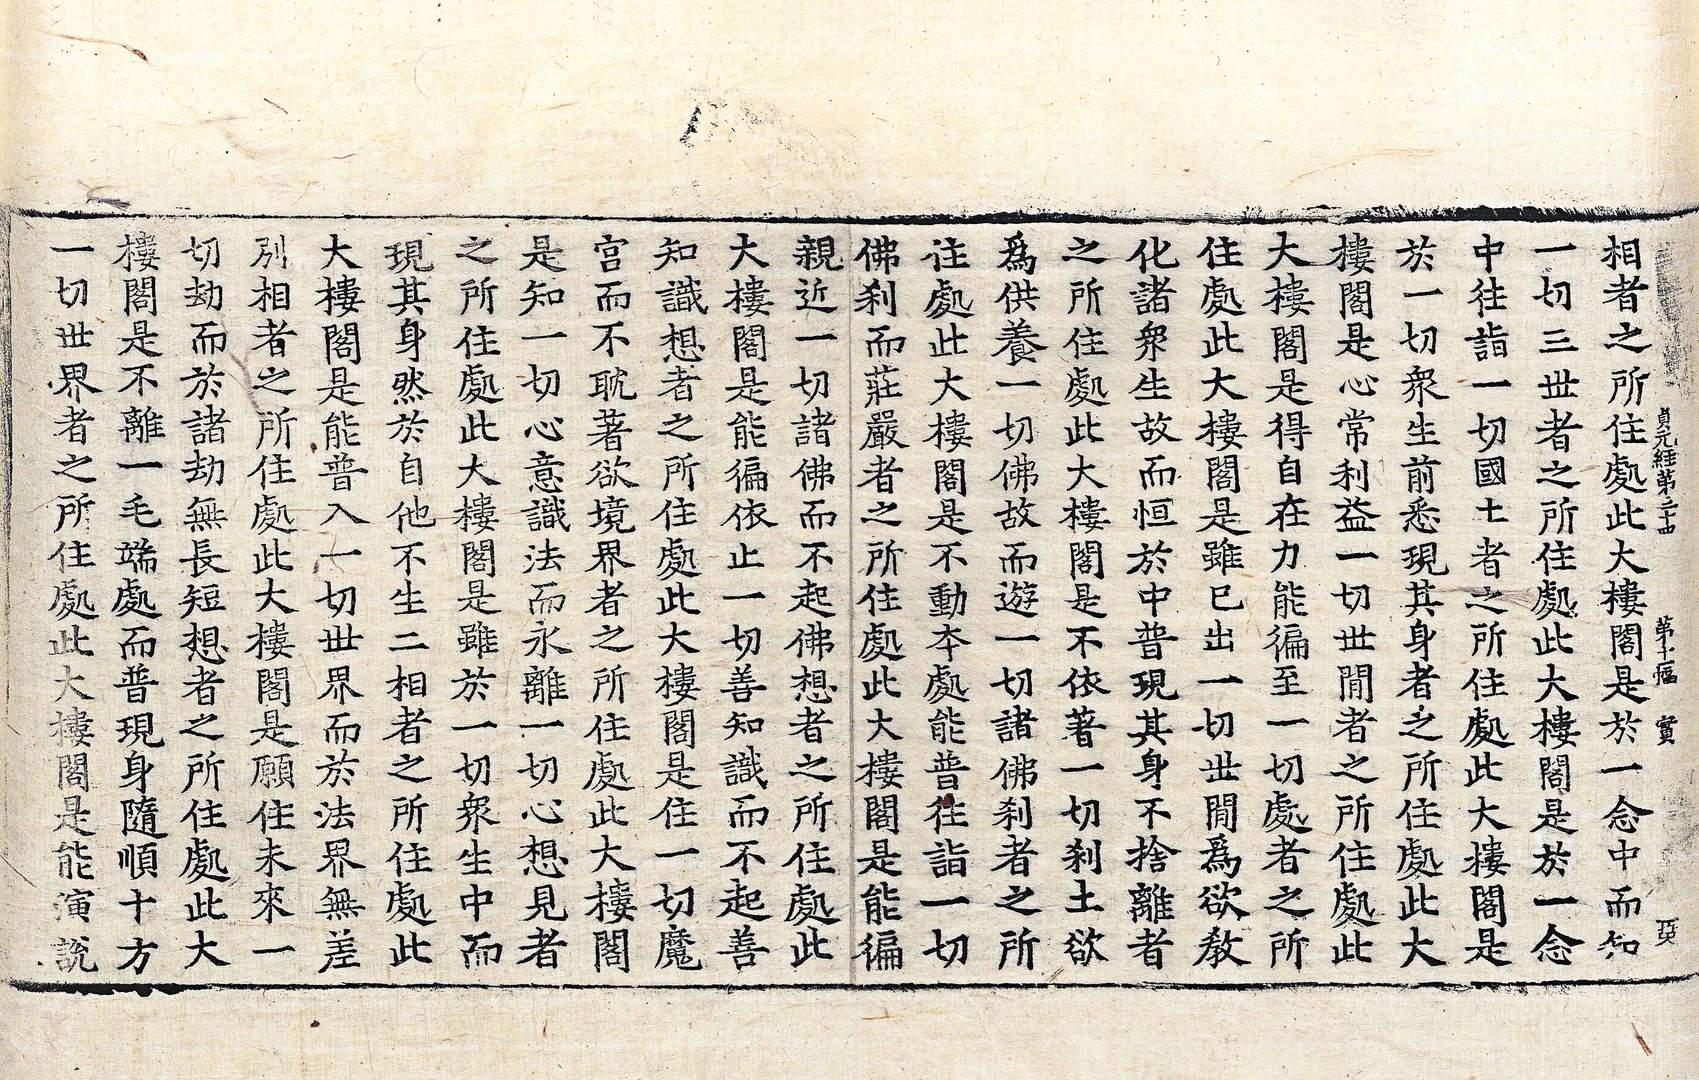 貞元經第三十四 第十幅 實
相者之所住處此大樓閣是於一念中而知
一切三世者之所住處此大樓閣是於一念
中往詣一切國土者之所住處此大樓閣是
於一切衆生前悉現其身者之所住處此大
樓閣是心常利益一切世閒者之所住處此
大樓閣是得自在力能徧至一切處者之所
住處此大樓閣是雖已出一切世閒爲欲敎
化諸衆生故而恒於中普現其身不捨離者
之所住處此大樓閣是不依著一切刹土欲
爲供養一切佛故而遊一切諸佛刹者之所
住處此大樓閣是不動本處能普往詣一切
佛刹而莊嚴者之所住處此大樓閣是能徧
親近一切諸佛而不起佛想者之所住處此
大樓閣是能徧依止一切善知識而不起善
知識想者之所住處此大樓閣是住一切魔
宮而不耽著欲境界者之所住處此大樓閣
是知一切心意識法而永離一切心想見者
之所住處此大樓閣是雖於一切衆生中而
現其身然於自他不生二相者之所住處此
大樓閣是能普入一切世界而於法界無差
別相者之所住處此大樓閣是願住未來一
切劫而於諸劫無長短想者之所住處此大
樓閣是不離一毛端處而普現身隨順十方
一切世界者之所住處此大樓閣是能演說